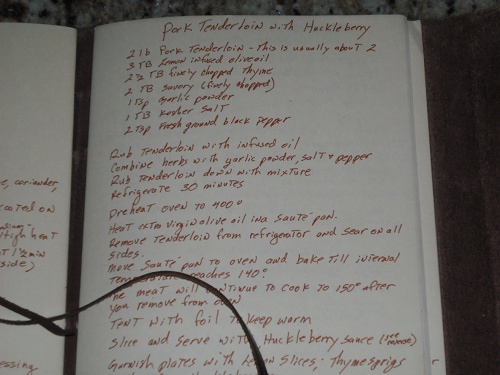 e, coriander,
coated on
High heat
T 1 1/2 min
side)
essing
Pork Tenderloin with Huckleberry
2 lb Pork Tenderloin - This is usually about 2
3 TB Lemon infused olive oil
2 1/2 TB finely chopped Thyme
2 TB savory (finely chopped)
1 Tsp garlic powder
1 TB Kosher Salt
2 Tsp Fresh ground black Pepper
Rub Tenderloin with infused oil
Combine herbs with garlic powder, salt & pepper
Rub Tenderloin down with mixture
Refrigerate 30 minutes
Preheat oven to 400°
Heat extra virgin olive oil in a sauté pan.
Remove Tenderloin from refrigerator and sear on all
sides.
Move sauté pan to oven and bake till internal
Temperature reaches 140°
The meat will continue to cook to 150° after
you remove from oven
Tent with foil to keep warm
Slice and serve with Huckleberry sauce (see reverse)
Garnish plates with lemon slices, thyme sprigs